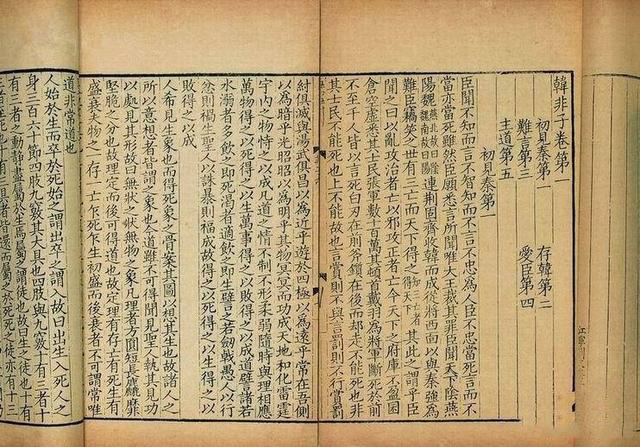 韓非子卷第一
初見秦第一　存韓第二
難言第三　愛臣第四
主道第五
初見秦第一
臣聞不知而言不智知而不言不忠為人臣不忠當死言而不
當亦當死雖然臣願悉言所聞唯大王裁其罪臣聞天下陰燕
陽魏燕北故曰陰魏南故曰陽連荊固齊收韓而成從將西面以與秦強為
難臣竊笑之世有三亡而天下得之知三亡者得天下其此之謂乎臣
聞之曰以亂攻治者亡以邪攻正者亡今天下之府庫不盈囷
倉空虛悉其士民張軍數十百萬其頓首戴羽為將軍斷死於前
不至千人皆以言死白刃在前斧鑕在後而却走不能死也非
其士民不能死也上不能故也言賞則不與言罰則不行賞罰
紂俱滅與湯武俱昌以為近乎遊於四極以為遠乎常在吾側
以為暗乎光昭昭以為明乎其物冥冥而功成天地和化雷霆
宇內之物恃之以成凡道之情不制不形柔弱隨時與理相應
萬物得之以死得之以生萬事得之以敗得之以成道譬諸若
水溺者多飲之即死渴者適飲之即生譬之若劍戟愚人以行
忿則禍生聖人以誅暴則福成故得之以死得之以生得之以
敗得之以成
人希見生象也而得死象之骨案其圖以想其生也故諸人之
所以意想者皆謂之象也今道雖不可得聞見聖人執其見功
以處見其形故曰無狀之狀無物之象凡理者方圓短長麤靡
堅脆之分也故理定而後可得道也故定理有存亡有死生有
盛衰夫物之一存一亡乍死乍生初盛而後衰者不可謂常唯
道非常道也
人始於生而卒於死始之謂出卒之謂入故曰出生入死人之
身三百六十節四肢九竅其大具也四肢與九竅十有三者十
有三者之動靜盡屬於生焉屬之謂徒也故曰生之徒也十有